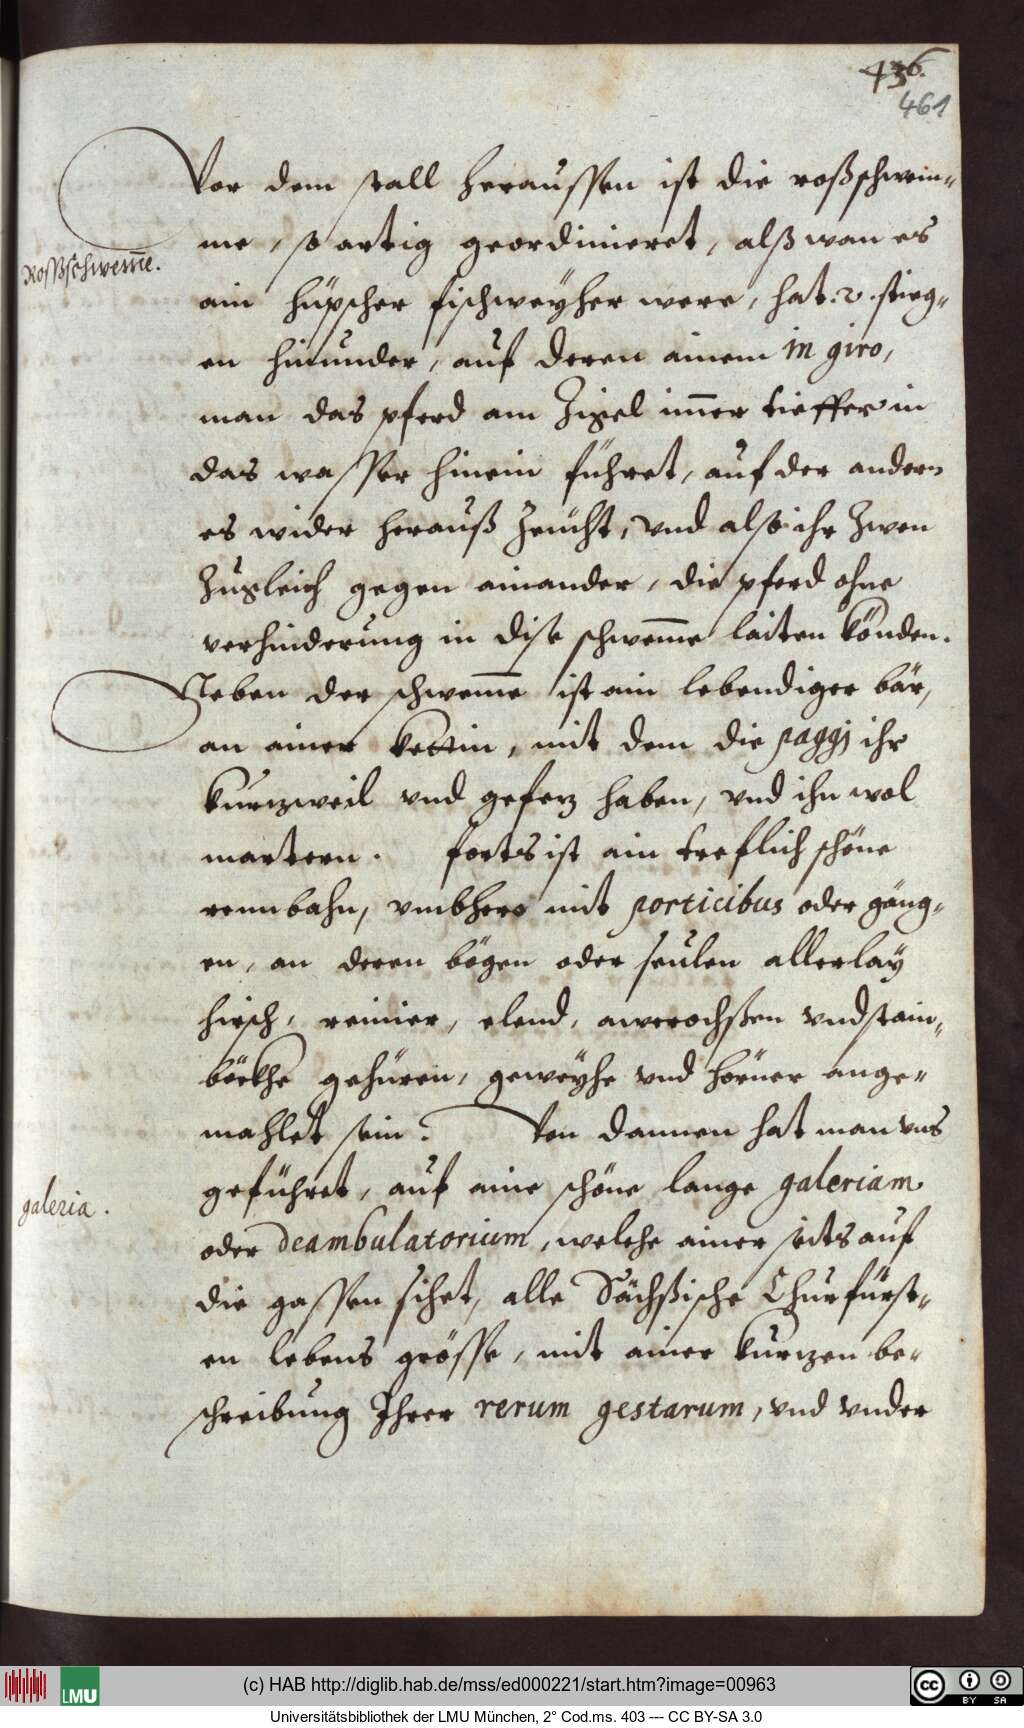 436.
461
Vor dem stall heraussen ist die roßschwem-
me, so artig geordinieret, alß wan es
Rossschwem̄e.
ain hüpscher fischweyher were, hat .2. stieg-
en hinunder, auf deren ainem in giro,
man das pferd am Zigel im̄er tieffer in
das wasser hinein führet, auf der andern
es wider herauß zeücht, vnd also ihr zwen
Zugleich gegen ainander, die pferd ohne
verhinderung in dise schwem̄e laiten könden.
Neben der schwem̄e ist ain lebendiger bär,
an ainer kettin, mit dem die paggj ihr
kurzweil vnd geferz haben, vnd ihn wol
martern. forts ist ain treflich schöne
rennbahn, vmbhero mit porticibus oder gäng-
en, an deren bögen oder seulen allerlay
hirsch, reinier, elend, awerochßen vnd stain-
böckhe gehüren, geweyhe vnd hörner ange-
mahlet sein. Von dannen hat man vns
geführet, auf aine schöne lange galeriam
galeria.
oder deambulatorium, welche ainer seits auf
die gassen sihet, alle Sächßische Churfürst-
en lebens grösse, mit ainer kurzen be-
schreibung Ihrer rerum gestarum, vnd vnder
(c) HAB http://diglib.hab.de/mss/ed000221/start.htm?image=00963
LMU
CC BY SA
Universitätsbibliothek der LMU München, 2° Cod.ms. 403 --- CC BY-SA 3.0